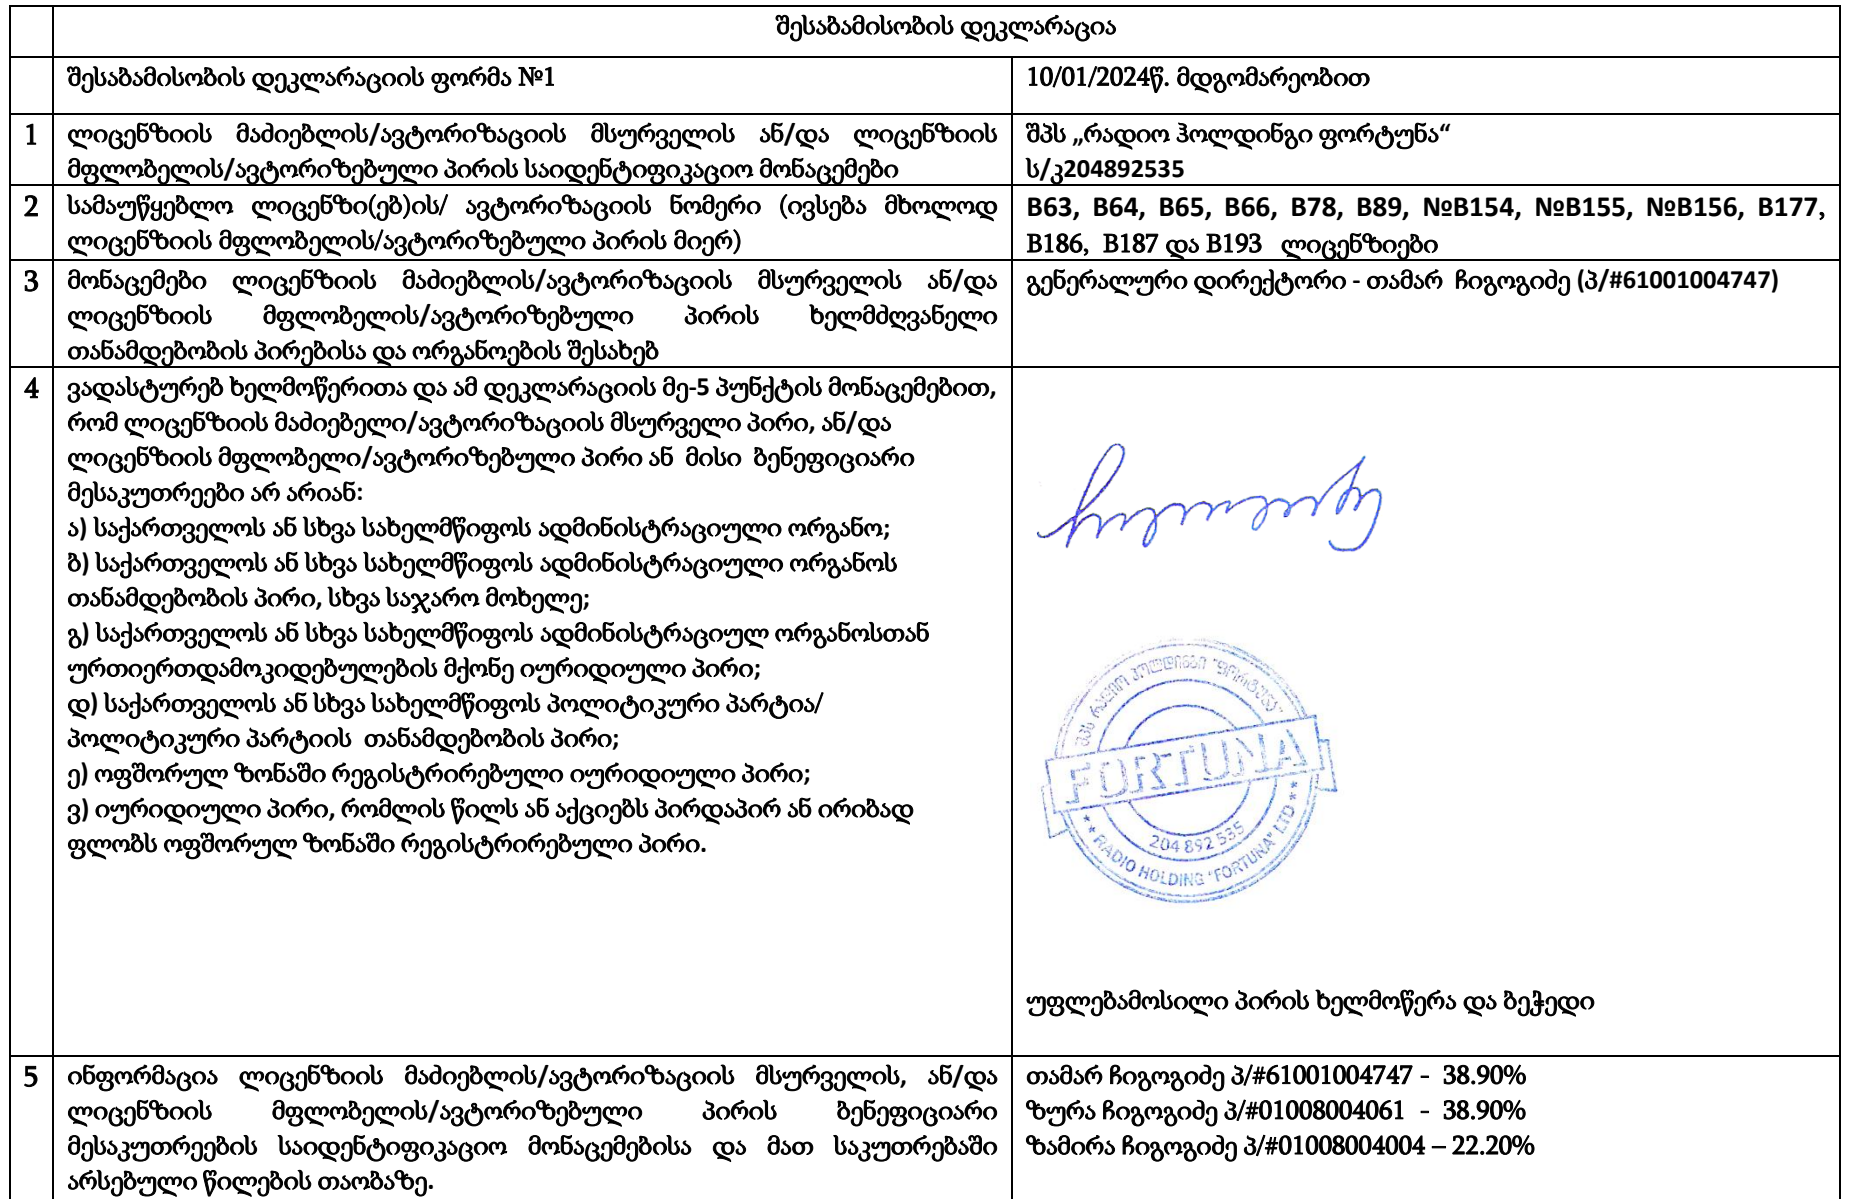 შესაბამისობის დეკლარაცია
შესაბამისობის დეკლარაციის ფორმა №1
10/01/2024წ. მდგომარეობით
1
ლიცენზიის მაძიებლის/ავტორიზაციის მსურველის ან/და ლიცენზიის
მფლობელის/ავტორიზებული პირის საიდენტიფიკაციო მონაცემები
შპს „რადიო ჰოლდინგი ფორტუნა“
ს/კ204892535
2
სამაუწყებლო ლიცენზი(ებ)ის/ ავტორიზაციის ნომერი (ივსება მხოლოდ
ლიცენზიის მფლობელის/ავტორიზებული პირის მიერ)
B63, B64, B65, B66, B78, B89, №B154, №B155, №B156, B177,
B186, B187 და B193 ლიცენზიები
3
მონაცემები ლიცენზიის მაძიებლის/ავტორიზაციის მსურველის ან/და
ლიცენზიის მფლობელის/ავტორიზებული პირის ხელმძღვანელი
თანამდებობის პირებისა და ორგანოების შესახებ
გენერალური დირექტორი - თამარ ჩიგოგიძე (პ/#61001004747)
4
ვადასტურებ ხელმოწერითა და ამ დეკლარაციის მე-5 პუნქტის მონაცემებით,
რომ ლიცენზიის მაძიებელი/ავტორიზაციის მსურველი პირი, ან/და
ლიცენზიის მფლობელი/ავტორიზებული პირი ან მისი ბენეფიციარი
მესაკუთრეები არ არიან:
ა) საქართველოს ან სხვა სახელმწიფოს ადმინისტრაციული ორგანო;
ბ) საქართველოს ან სხვა სახელმწიფოს ადმინისტრაციული ორგანოს
თანამდებობის პირი, სხვა საჯარო მოხელე;
გ) საქართველოს ან სხვა სახელმწიფოს ადმინისტრაციულ ორგანოსთან
ურთიერთდამოკიდებულების მქონე იურიდიული პირი;
დ) საქართველოს ან სხვა სახელმწიფოს პოლიტიკური პარტია/
პოლიტიკური პარტიის თანამდებობის პირი;
ე) ოფშორულ ზონაში რეგისტრირებული იურიდიული პირი;
ვ) იურიდიული პირი, რომლის წილს ან აქციებს პირდაპირ ან ირიბად
ფლობს ოფშორულ ზონაში რეგისტრირებული პირი.
შპს რადიო ჰოლდინგი "ფორტუნა"
FORTUNA
204 892 535
** RADIO HOLDING "FORTUNA" LTD **
უფლებამოსილი პირის ხელმოწერა და ბეჭედი
5
ინფორმაცია ლიცენზიის მაძიებლის/ავტორიზაციის მსურველის, ან/და
ლიცენზიის მფლობელის/ავტორიზებული პირის ბენეფიციარი
მესაკუთრეების საიდენტიფიკაციო მონაცემებისა და მათ საკუთრებაში
არსებული წილების თაობაზე.
თამარ ჩიგოგიძე პ/#61001004747 - 38.90%
ზურა ჩიგოგიძე პ/#01008004061 - 38.90%
ზამირა ჩიგოგიძე პ/#01008004004 – 22.20%